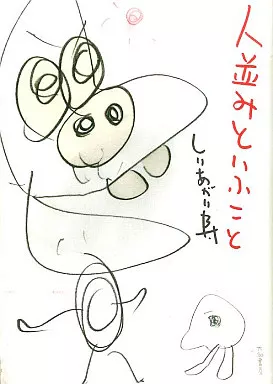 人並みといふこと
しりあがり寿